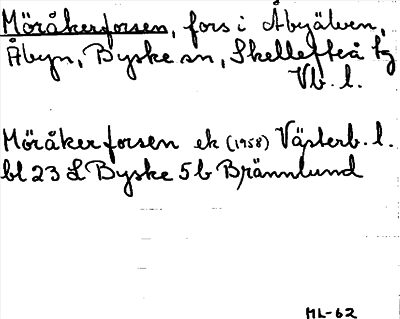 Möråkerforsen, fors i Åbyälven,
Åbyn, Byske sn, Skellefteå tg
Vb. l.
Möråkerforsen ek (1958) Västerb. l.
bl 23 L Byske 5 b Brännlund
HL-62